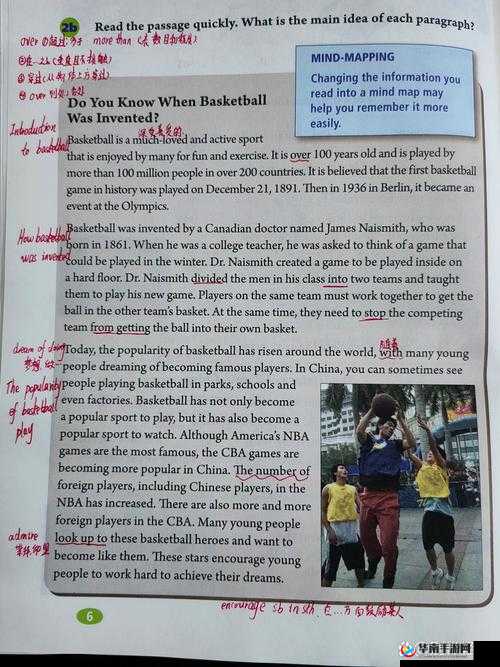 2b Read the passage quickly. What is the main idea of each paragraph?
over ①超过;多于 more than (表数目和程度)
②在…上(垂直且不接触)
MIND-MAPPING
Changing the information you
read into a mind map may
help you remember it more
easily.
Do You Know When Basketball
Was Invented?
深受喜爱的
Introduction
to basketball
Basketball is a much-loved and active sport
that is enjoyed by many for fun and exercise. It is over 100 years old and is played by
more than 100 million people in over 200 countries. It is believed that the first basketball
game in history was played on December 21, 1891. Then in 1936 in Berlin, it became an
event at the Olympics.
How basketball
was invented
Basketball was invented by a Canadian doctor named James Naismith, who was
born in 1861. When he was a college teacher, he was asked to think of a game that
could be played in the winter. Dr. Naismith created a game to be played inside on
a hard floor. Dr. Naismith divided the men in his class into two teams and taught
them to play his new game. Players on the same team must work together to get the
ball in the other team's basket. At the same time, they need to stop the competing
team from getting the ball into their own basket.
dream of doing
The popularity
of basketball
play
Today, the popularity of basketball has risen around the world, with many young
people dreaming of becoming famous players. In China, you can sometimes see
people playing basketball in parks, schools and
even factories. Basketball has not only become
a popular sport to play, but it has also become a
popular sport to watch. Although America's NBA
games are the most famous, the CBA games are
becoming more popular in China. The number of
foreign players, including Chinese players, in the
NBA has increased. There are also more and more
foreign players in the CBA. Many young people
look up to these basketball heroes and want to
become like them. These stars encourage young
people to work hard to achieve their dreams.
admire
6
encourage sb in sth. 在…方面鼓励某人
华南手游网